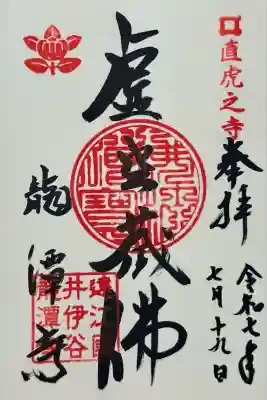 直虎之寺
奉拝
令和七年
七月十九日
虚空蔵佛
龍潭寺
遠江國
井伊谷
龍潭寺